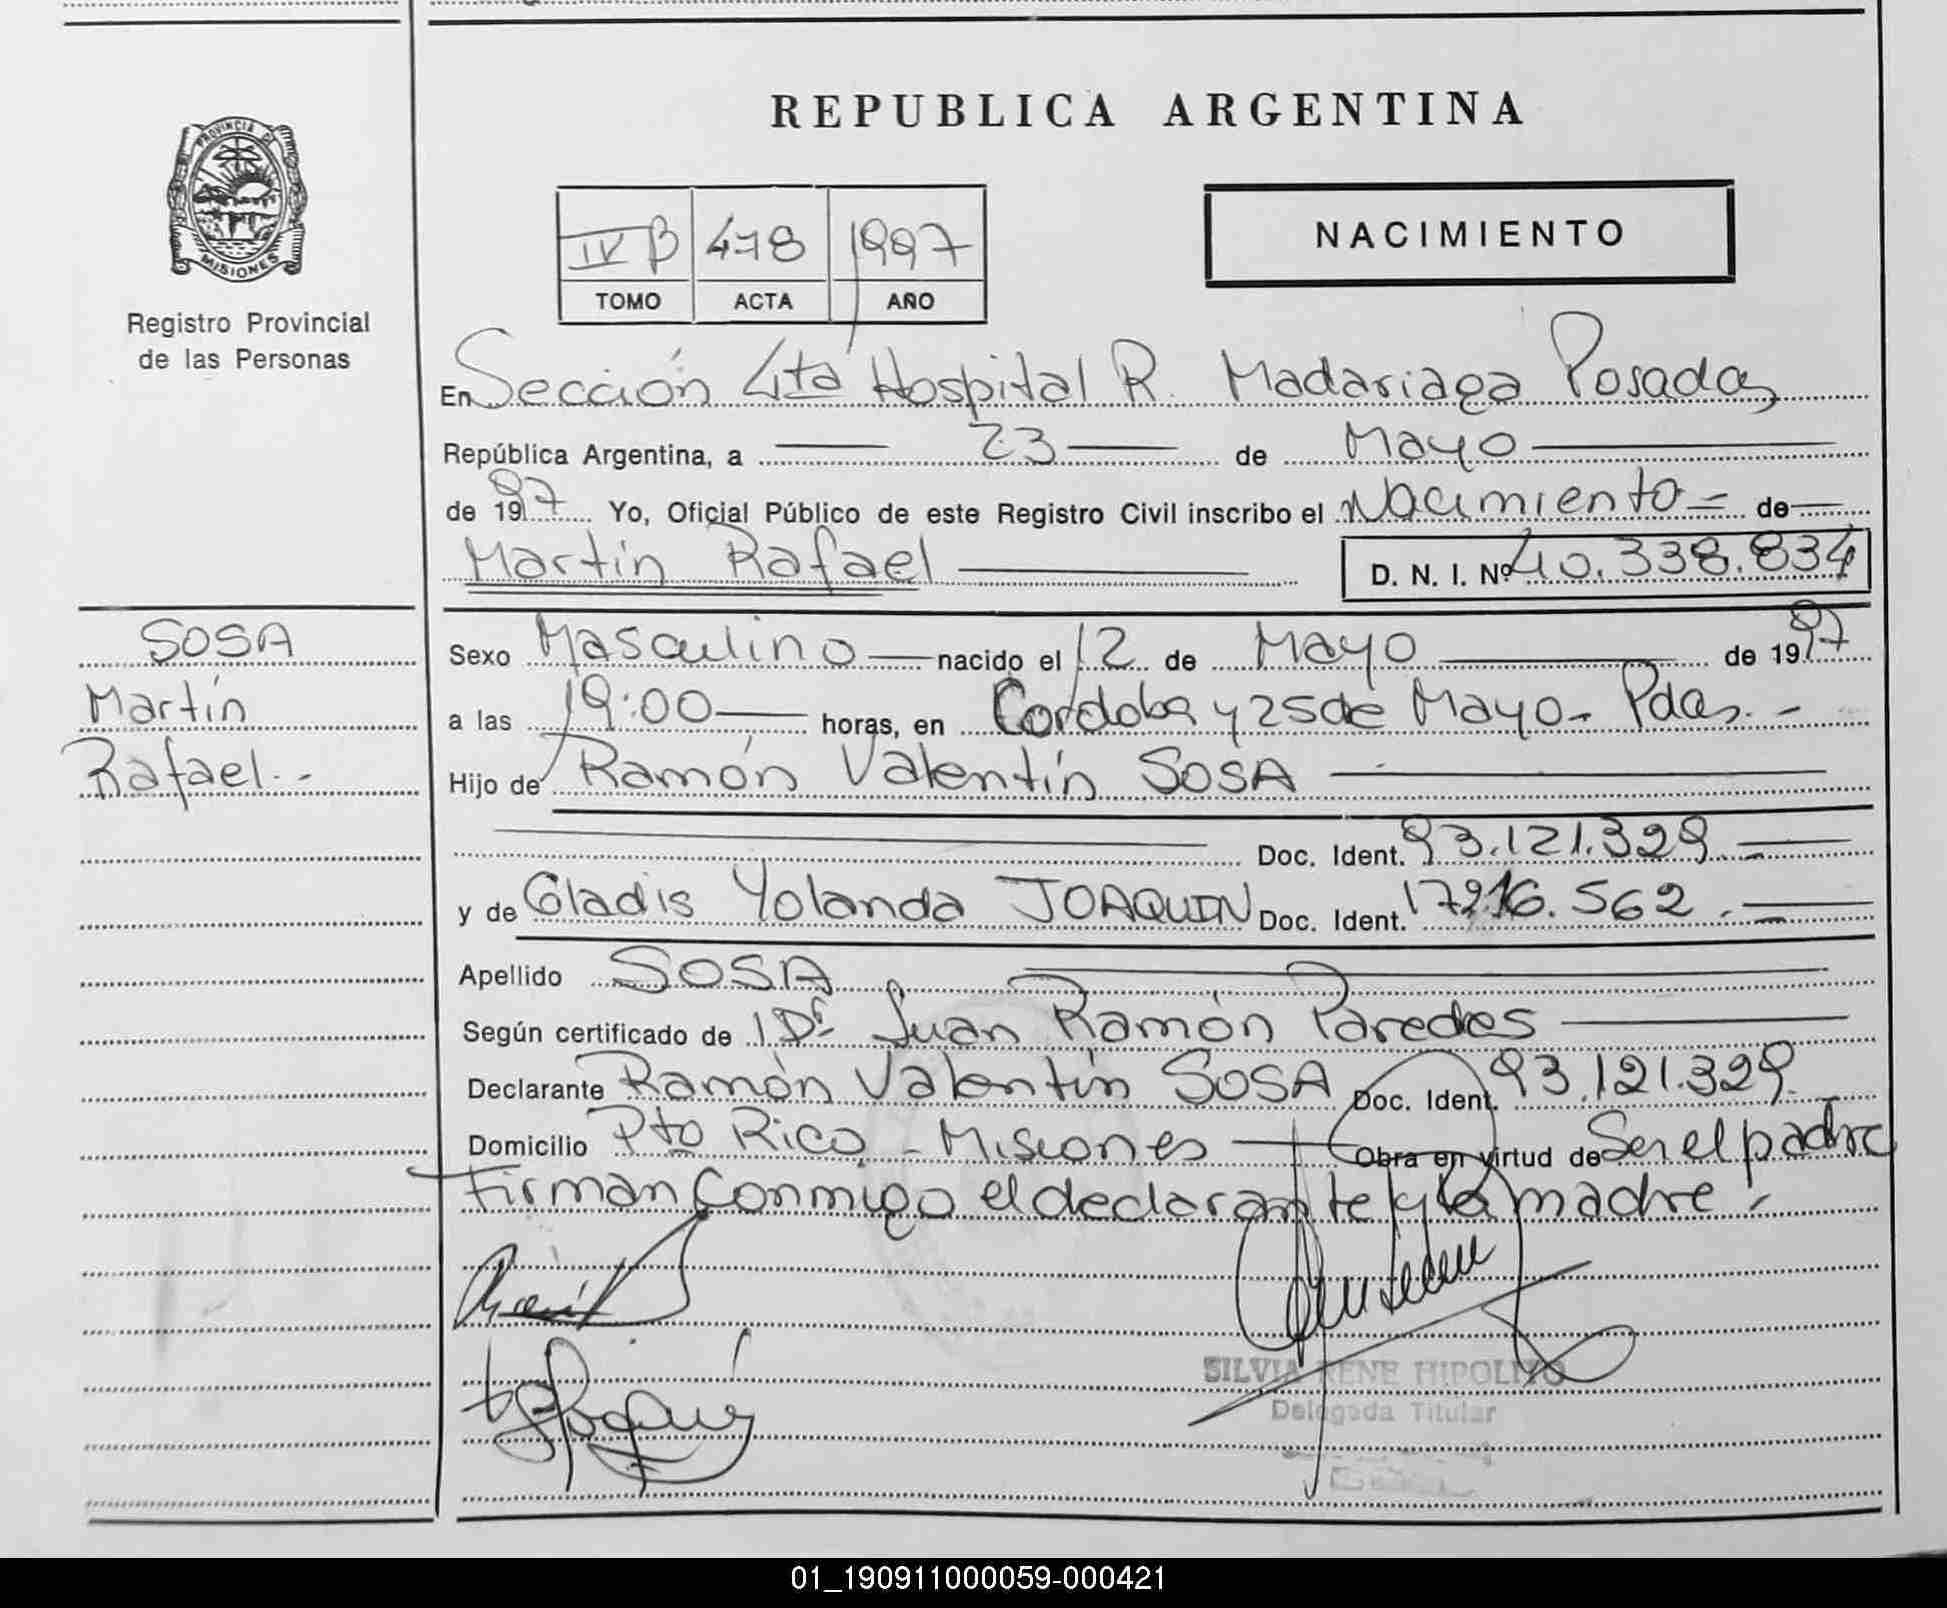 REPUBLICA ARGENTINA
PROVINCIA DE
MISIONES
Registro Provincial
de las Personas
IV B 478 1997
TOMO ACTA AÑO
NACIMIENTO
En Sección 4ta Hospital R. Madariaga Posadas
República Argentina, a 23 de Mayo
de 1997 Yo, Oficial Público de este Registro Civil inscribo el Nacimiento = de
Martín Rafael D. N. I. Nº 40.338.834
SOSA
Martín
Rafael.-
Sexo Masculino nacido el 12 de Mayo de 1997
a las 19:00 horas, en Cordoba y 25 de Mayo - Pdas. -
Hijo de Ramón Valentín SOSA
Doc. Ident. 93.121.329
y de Gladis Yolanda JOAQUIN Doc. Ident. 562
Apellido SOSA
Según certificado de 1 Dr Juan Ramón Paredes
Declarante Ramón Valentín SOSA Doc. Ident. 93.121.329.
Domicilio Pto Rico - Misiones Obra en virtud de Ser el padre
Firman Conmigo el declarante y la madre.-
SILVIA RENE HIPOLITO
Delegada Titular
01_190911000059-000421